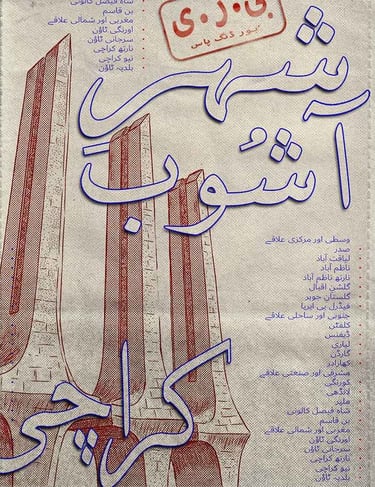 بور ڈنگ پاس
شاہ فیصل کالونی
بن قاسم
مغربی اور شمالی علاقے
اورنگی ٹاؤن
سرجانی ٹاؤن
نارتھ کراچی
نیو کراچی
بلدیہ ٹاؤن
شہرِ
آشُوب
وسطی اور مرکزی علاقے
صدر
لیاقت آباد
ناظم آباد
نارتھ ناظم آباد
گلشن اقبال
گلستان جوہر
فیڈرل بی ایریا
جنوبی اور ساحلی علاقے
کلفٹن
ڈیفنس
لیاری
گارڈن
کھارادر
مشرقی اور صنعتی علاقے
کورنگی
لانڈھی
ملیر
شاہ فیصل کالونی
بن قاسم
مغربی اور شمالی علاقے
اورنگی ٹاؤن
سرجانی ٹاؤن
نارتھ کراچی
نیو کراچی
بلدیہ ٹاؤن
کراچی